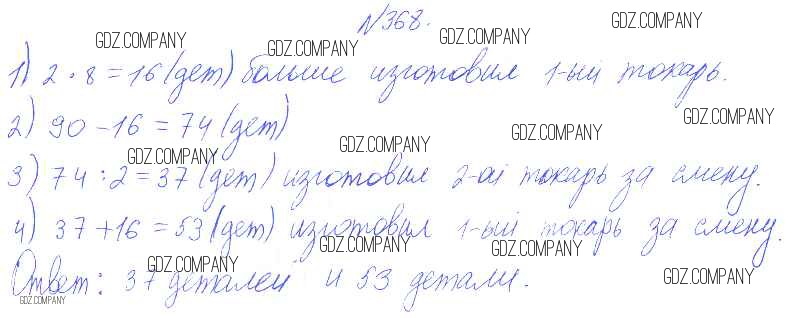 №368.
1) 2 · 8 = 16 (дет) больше изготовил 1-ый токарь.
2) 90 - 16 = 74 (дет)
3) 74 : 2 = 37 (дет) изготовил 2-ой токарь за смену.
4) 37 + 16 = 53 (дет) изготовил 1-ый токарь за смену.
Ответ: 37 деталей и 53 детали.
GDZ.COMPANY
GDZ.COMPANY
GDZ.COMPANY
GDZ.COMPANY
GDZ.COMPANY
GDZ.COMPANY
GDZ.COMPANY
GDZ.COMPANY
GDZ.COMPANY
GDZ.COMPANY
GDZ.COMPANY
GDZ.COMPANY
GDZ.COMPANY